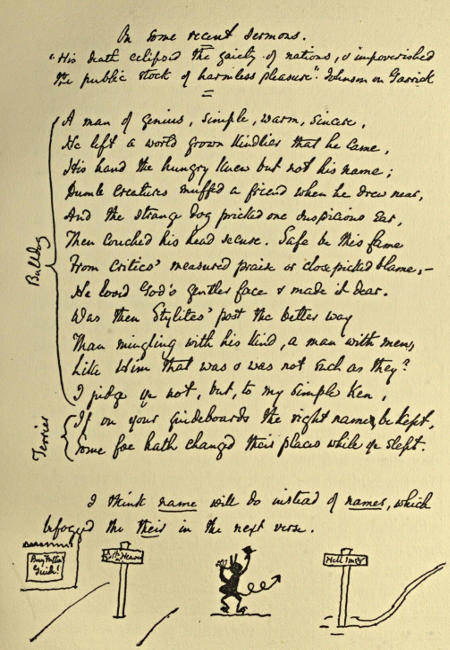 On some recent Sermons.
"His death eclipsed the gaiety of nations, & impoverished
the public stock of harmless pleasure". Johnson on Garrick
A man of genius, simple, warm, sincere,
He left a world grown kindlier that he came,
His hand the hungry knew but not his name;
Dumb creatures snuffed a friend when he drew near,
And the strange dog pricked one suspicious ear,
Then couched his head secure. Safe be this fame
From Critics' measured praise or close picked blame,—
He loved God's gentler face & made it dear.
Was then Stylites' post the better way
Than mingling with his kind, a man with men,
Like Him that was & was not such as they?
I judge ye not, but, to my simple ken,
If on your guideboards the right name, be kept,
Some foe hath changed their places while ye slept.
Bulldog
Terrier
I think name will do instead of names, which
befogged the their in the next verse.
Hell